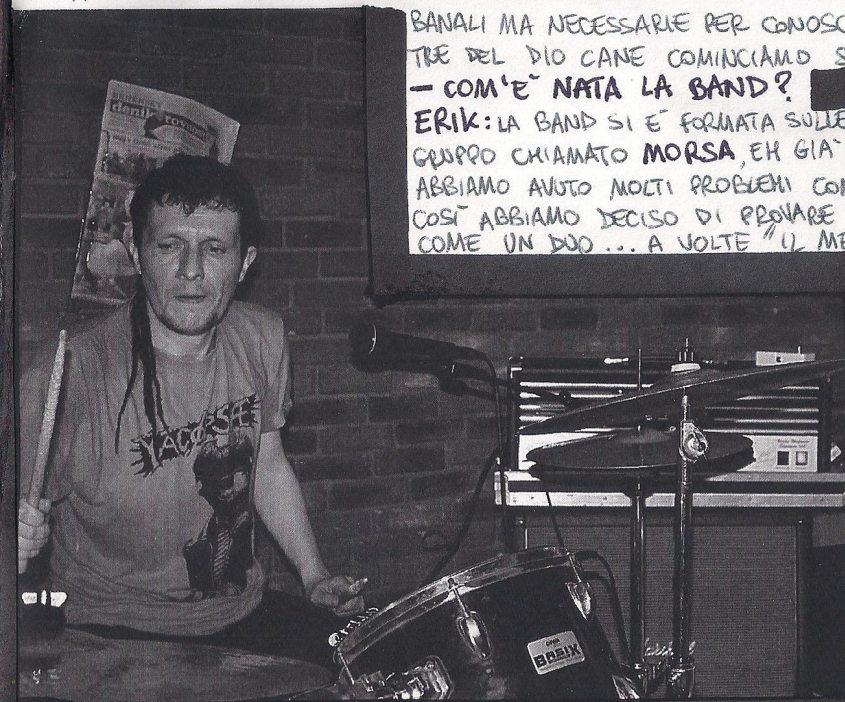 BANALI MA NECESSARIE PER CONOSC
TRE DEL DIO CANE COMINCIAMO S
– COM'E` NATA LA BAND?
ERIK: LA BAND SI E` FORMATA SULLE
GRUPPO CHIAMATO MORSA, EH GIA`
ABBIAMO AVUTO MOLTI PROBLEMI CON
COSI` ABBIAMO DECISO DI PROVARE
COME UN DUO ... A VOLTE "IL ME
deník
rovnost
YACØPSÆ
BASIX